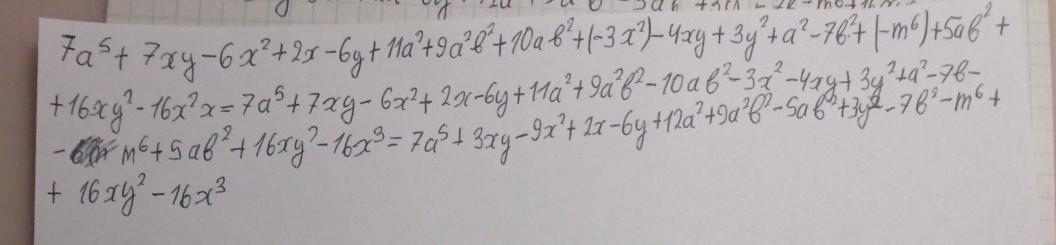 7a⁵ + 7xy - 6x² + 2x - 6y + 11a² + 9a²b² + 10ab² + (-3x²) - 4xy + 3y² + a² - 7b² + (-m⁶) + 5ab² +
+ 16xy² - 16x²x = 7a⁵ + 7xy - 6x² + 2x - 6y + 11a² + 9a²b² - 10ab² - 3x² - 4xy + 3y² + a² - 7b -
- m⁶ + 5ab² + 16xy² - 16x³ = 7a⁵ + 3xy - 9x² + 2x - 6y + 12a² + 9a²b² - 5ab² + 3y² - 7b² - m⁶ +
+ 16xy² - 16x³